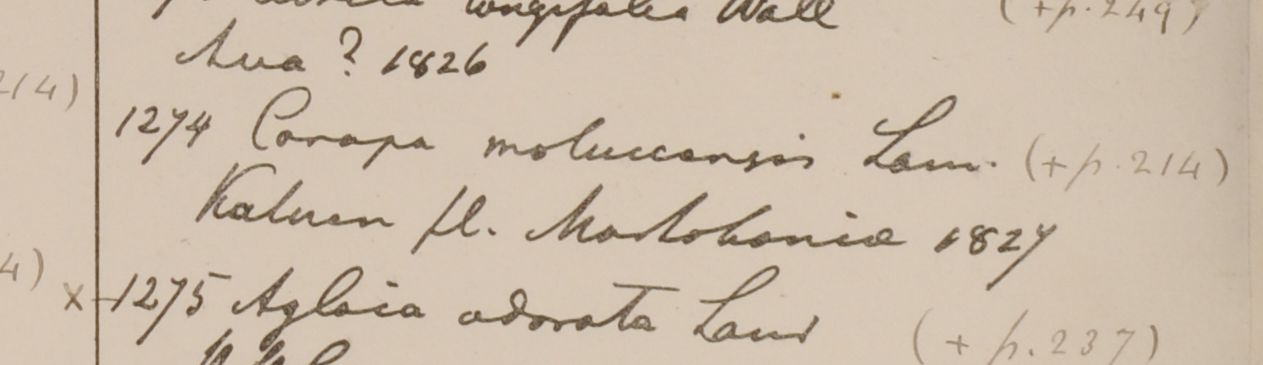 longifolia Wall (+p.249)
Ava ? 1826
214)
1274 Carapa moluccensis Lam. (+p.214)
Kaluen fl. Martobania 1827
4)
x 1275 Aglaia odorata Lour (+ p.237)